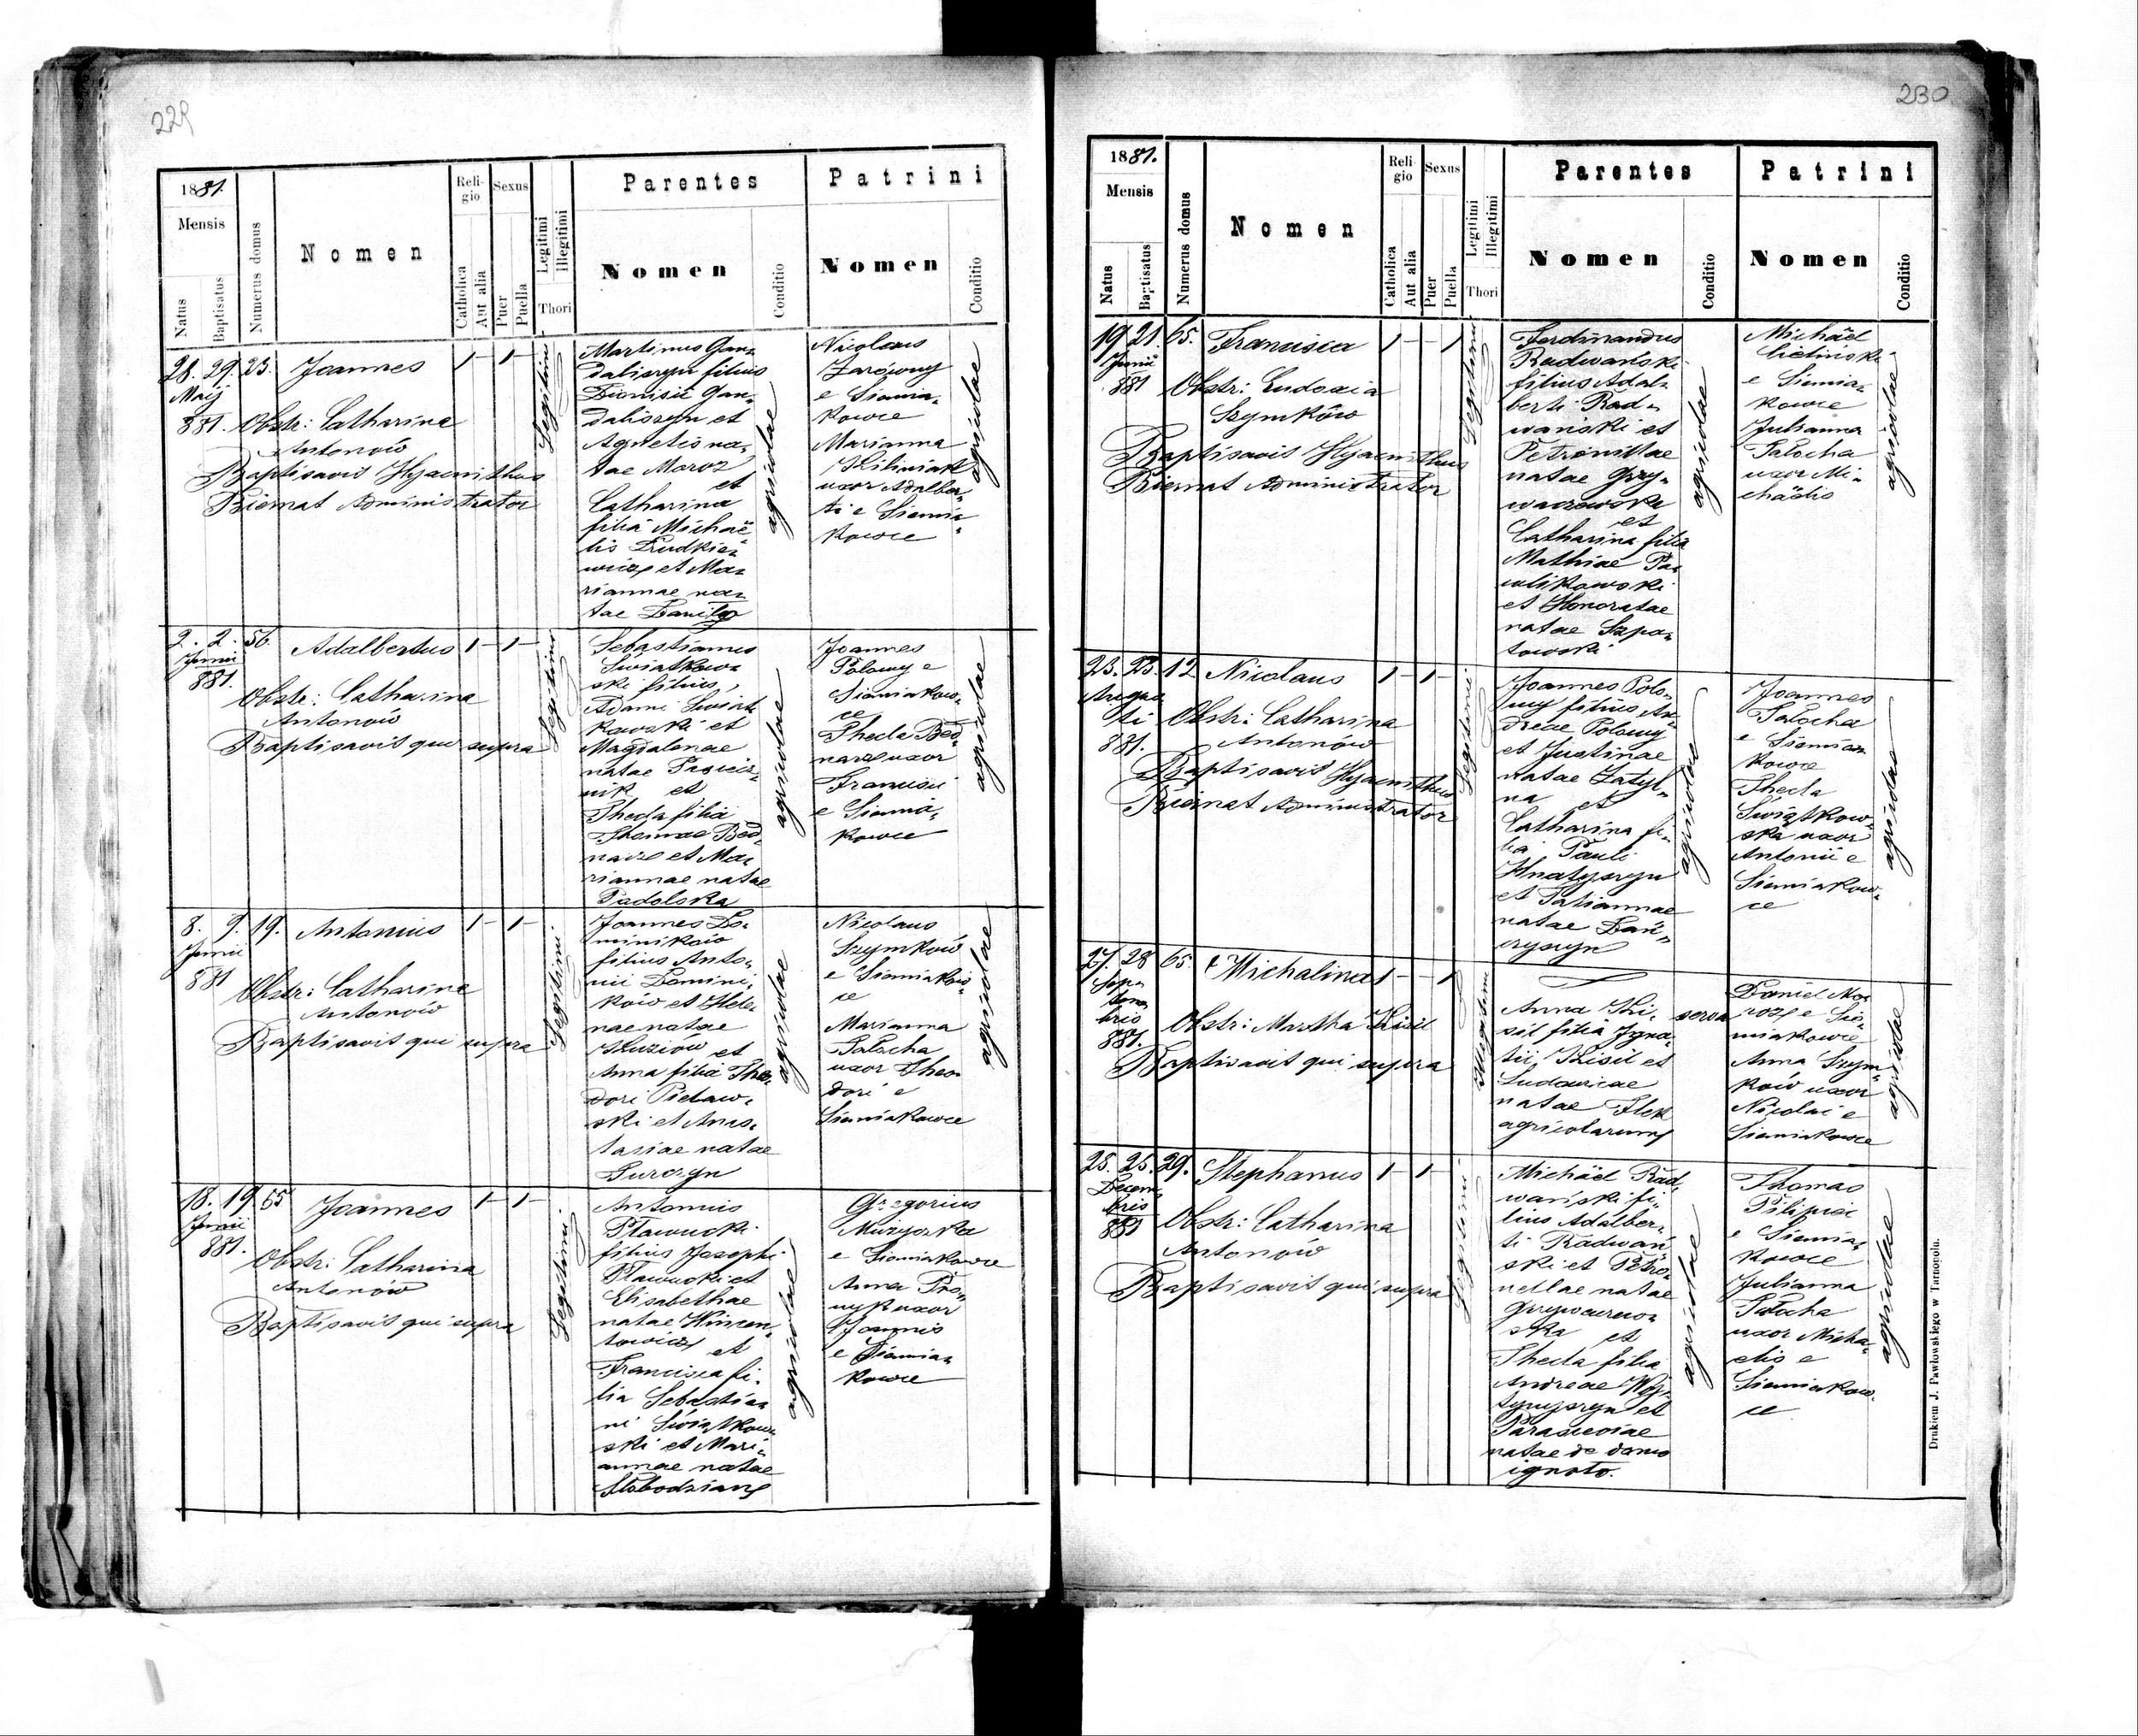 229
1881.
Mensis
Natus
Baptisatus
Numerus domus
Nomen
Reli-
gio
Catholica
Aut alia
Sexus
Puer
Puella
Legitimi
Illegitimi
Thori
Parentes
Nomen
Conditio
Patrini
Nomen
Conditio
28. 29. 23. Joannes 1- 1-
Maij
881. Obstr: Catharina
Antonów
Baptisavit Hyacinthus
Biernat Administrator
Legitimi
Martinus Gan-
daliszyn filius
Dionisii Gan-
daliszyn et
Agnetis na-
tae Moroz
et
Catharina
filia Michaë-
lis Dudkie-
wicz et Ma-
riannae na-
tae
agricolae
Nicolaus
Zarowny
e Siemia-
kowce
Marianna
Kiliniak
uxor Adalber-
ti e Siemia-
kowce
agricolae
2. 2. 56. Adalbertus 1- 1-
Junii
881.
Obstr: Catharina
Antonów
Baptisavit qui supra
Legitimi
Sebastianus
Swiatkow-
ski filius
Adami Swiat-
kowski et
Magdalenae
natae
et
Thecla filia
Thomae Bed-
narz et Ma-
riannae natae
Padolska
agricolae
Joannes
Polowy e
Siemiakow-
ce
Thecla Bed-
narz uxor
Francisci
e Siemia-
kowce
agricolae
8. 9. 19. Antonius 1- 1-
Junii
881
Obstr: Catharina
Antonów
Baptisavit qui supra
Legitimi
Joannes Do-
miników
filius Anto-
nii Domini-
ków et Hele-
nae natae
Kuziow et
Anna filia Theo-
dori
ski et Anas-
tasiae natae
agricolae
Nicolaus
Szymków
e Siemiakow-
ce
Marianna
Patocha
uxor Theo-
dori e
Siemiakowce
agricolae
18. 19. 65 Joannes 1- 1-
Junii
881.
Obstr: Catharina
Antonów
Baptisavit qui supra
Legitimi
Antonius
Pławucki
filius Josephi
Pławucki et
Elisabethae
natae Wincen-
towicz et
Francisca fi-
lia Sebastia-
ni Świątkow-
ski et Mari-
annae natae
Słobodziany
agricolae
Gregorius
Muzyczka
e Siemiakowce
Anna
uxor
Joannis
e Siemia-
kowce
230
1881.
Mensis
Natus
Baptisatus
Numerus domus
Nomen
Reli-
gio
Catholica
Aut alia
Sexus
Puer
Puella
Legitimi
Illegitimi
Thori
Parentes
Nomen
Conditio
Patrini
Nomen
Conditio
19 21. 65. Francisca 1- -1
Junii
881 Obstr: Eudoxia
Szymków
Baptisavit Hyacinthus
Biernat Administrator
Legitimi
Ferdinandus
Radwański
filius Adal-
berti Rad-
wański et
Petronillae
natae Grzy-
waczewska
et
Catharina filia
Mathiae Pa-
wlikowski
et Honoratae
natae Szpa-
towski
agricolae
Michaël
e Siemia-
kowce
Julianna
Patocha
uxor Mi-
chaëlis
agricolae
23. 23. 12 Nicolaus 1- 1-
Augus-
ti Obstr: Catharina
881. Antonów
Baptisavit Hyacinthus
Biernat Administrator
Legitimi
Joannes Polo-
wy filius An-
dreae Polowy
et Justinae
natae Zatyl-
na et
Catharina fi-
lia Pauli
Hnatyszyn
et Tatiannae
natae
agricolae
Joannes
Patocha
e Siemia-
kowce
Thecla
Świątkow-
ska uxor
Antonii e
Siemiakow-
ce
agricolae
27. 28 65. Michalina 1- -1
Sep-
tem-
bris
881. Obstr: Martha Kisil
Baptisavit qui supra
Illegitimi
Anna Ki-
sil filia Igna-
tii Kisil et
Ludovicae
natae
agricolarum
serva
Daniel Mo-
roz e Sie-
miakowce
Anna Szym-
ków uxor
Nicolai e
Siemiakowce
agricolae
25. 25. 29. Stephanus 1- 1-
Decem-
bris
881 Obstr: Catharina
Antonów
Baptisavit qui supra
Legitimi
Michaël Rad-
wański fi-
lius Adalber-
ti Radwań-
ski et Petro-
nellae natae
Grzywaczew-
ska et
Thecla filia
Andreae
et
Parasceviae
natae de domo
ignoto.
agricolae
Thomas
Pilipiec
e Siemia-
kowce
Julianna
Patocha
uxor Micha-
elis e
Siemiakow-
ce
agricolae
Drukiem J. Pawłowskiego w Tarnopolu.